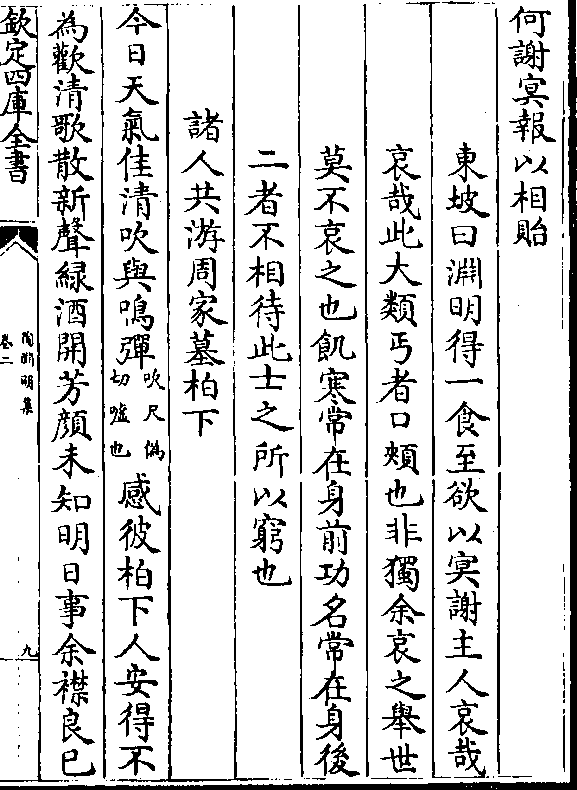 何謝冥報以相貽
東坡曰淵明得一食至欲以冥謝主人哀哉
哀哉此大類丐者口頰也非獨余哀之舉世
莫不哀之也飢寒常在身前功名常在身後
二者不相待此士之所以窮也
諸人共游周家墓柏下
今日天氣佳清吹與鳴彈吹尺偽切噓也感彼柏下人安得不
為歡清歌散新聲緑酒開芳顔未知明日事余襟良已
欽定四庫全書
陶淵明集
卷二
九